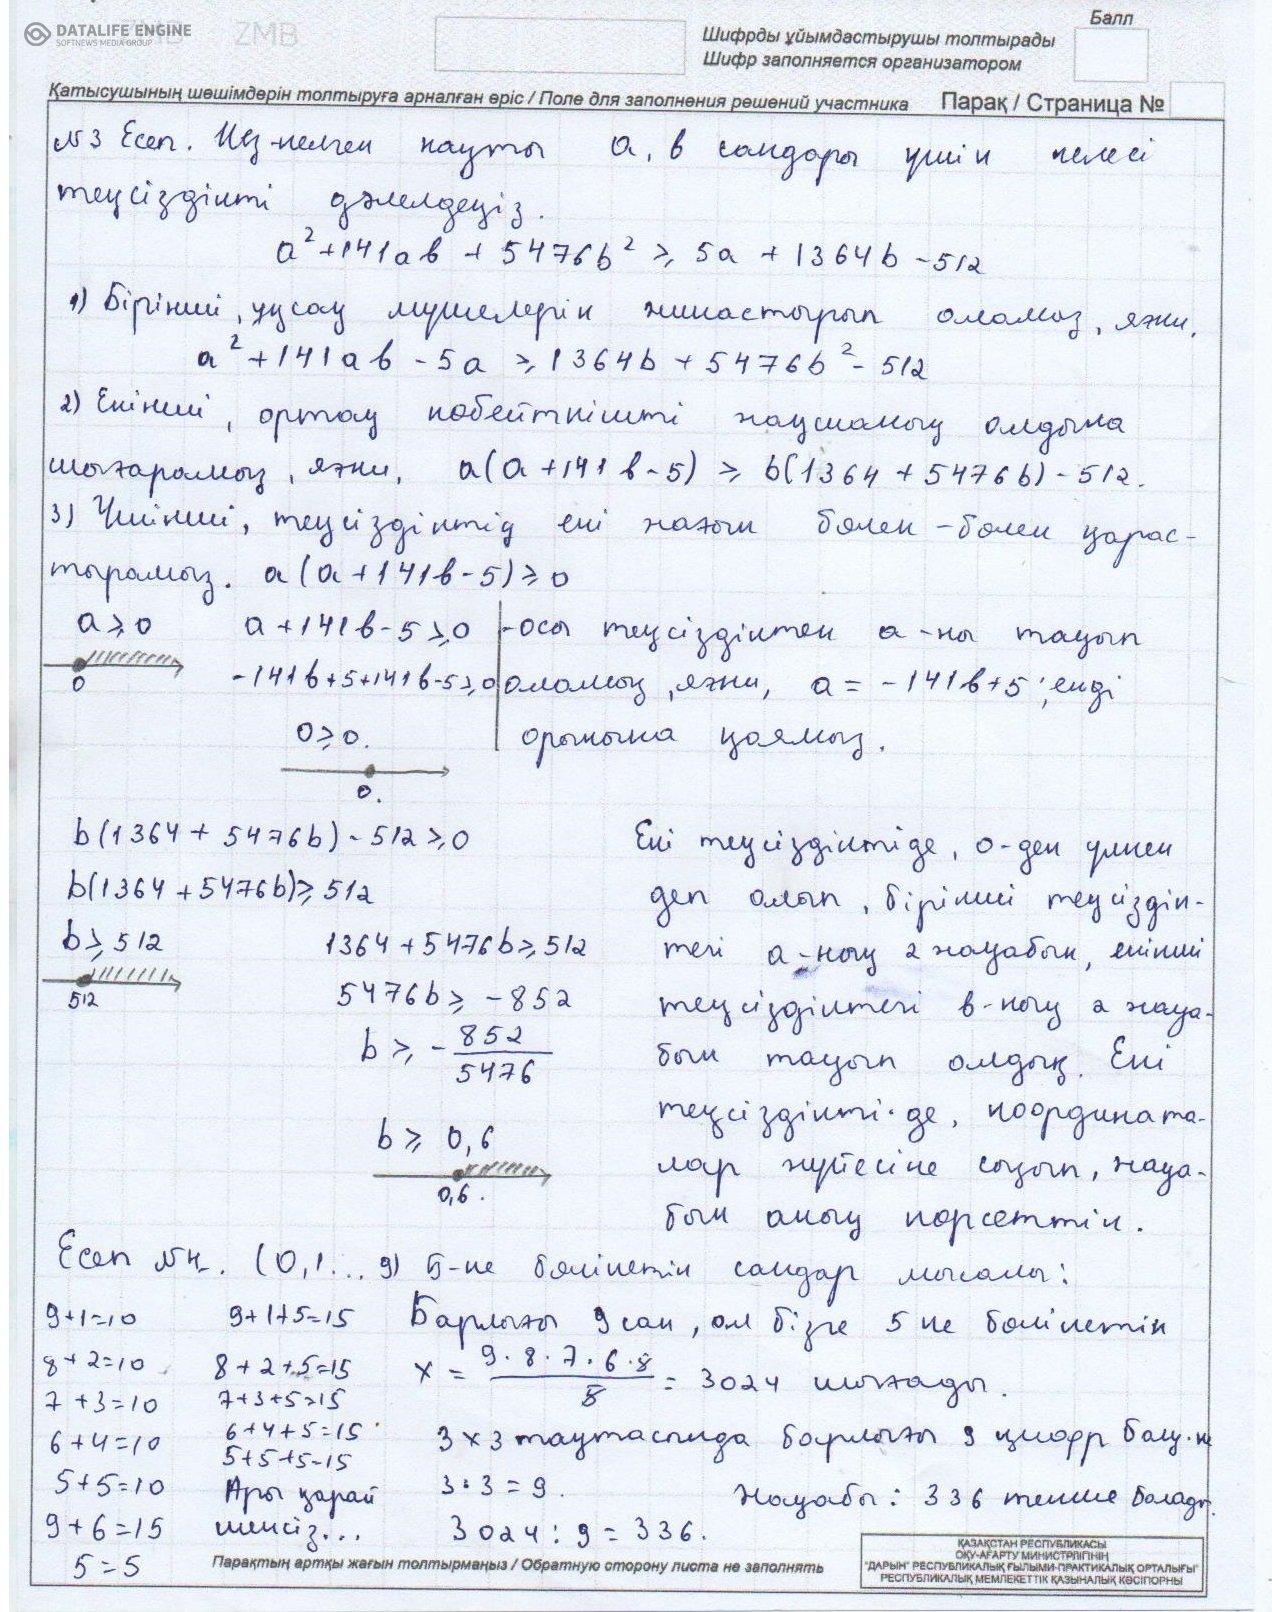 DATALIFE ENGINE
SOFTNEWS MEDIA GROUP
ZMB ZMB
Балл
Шифрды ұйымдастырушы толтырады
Шифр заполняется организатором
Қатысушының шешімдерін толтыруға арналған өріс / Поле для заполнения решений участника Парақ / Страница №
№3 Есеп. Кез-келген нақты a, b сандары үшін келесі
теңсіздікті дәлелдеңіз.
a² + 141ab + 5476b² ≥ 5a + 1364b - 512
1) Бірінші, ұқсас мүшелерін жинастырып аламыз, яғни,
a² + 141ab - 5a ≥ 1364b + 5476b² - 512
2) Екінші, ортақ көбейткішті жақшаның алдына
шығарамыз, яғни, a(a + 141b - 5) ≥ b(1364 + 5476b) - 512.
3) Үшінші, теңсіздіктің екі жағын бөлек-бөлек қарас-
тырамыз. a(a + 141b - 5) ≥ 0
a ≥ 0 a + 141b - 5 ≥ 0 -осы теңсіздіктен a-ны тауып
0 -141b + 5 + 141b - 5 ≥ 0 аламыз, яғни, a = -141b + 5; енді
0 ≥ 0. орынына қоямыз.
0.
b(1364 + 5476b) - 512 ≥ 0 Екі теңсіздікті де, 0-ден үлкен
b(1364 + 5476b) ≥ 512 деп алып, бірінші теңсіздік-
b ≥ 512 1364 + 5476b ≥ 512 тегі a-ның 2 жауабын, екінші
512 5476b ≥ -852 теңсіздіктегі b-ның 2 жауа-
b ≥ - 852/5476 бын тауып алдық. Екі
теңсіздікті де, координата-
b ≥ 0,6 лар жүйесіне сызып, жауа-
0,6. бын анық көрсеттік.
Есеп №4. (0,1...9) 5-ке бөлінетін сандар мысалы:
9+1=10 9+1+5=15 Барлығы 9 сан, ол бізге 5 ке бөлінетін
8+2=10 8+2+5=15 x = 9·8·7·6·5/5 = 3024 шығады.
7+3=10 7+3+5=15
6+4=10 6+4+5=15 3x3 таутаспада барлығы 9 цифр
5+5+5=15
5+5=10 Ары қарай 3·3=9. Жауабы: 336 болады.
9+6=15 шексіз... 3024:9=336.
5=5
Парақтың артқы жағын толтырмаңыз / Обратную сторону листа не заполнять
ҚАЗАҚСТАН РЕСПУБЛИКАСЫ
ОҚУ-АҒАРТУ МИНИСТРЛІГІНІҢ
"ДАРЫН" РЕСПУБЛИКАЛЫҚ ҒЫЛЫМИ-ПРАКТИКАЛЫҚ ОРТАЛЫҒЫ"
РЕСПУБЛИКАЛЫҚ МЕМЛЕКЕТТІК ҚАЗЫНАЛЫҚ КӘСІПОРНЫ